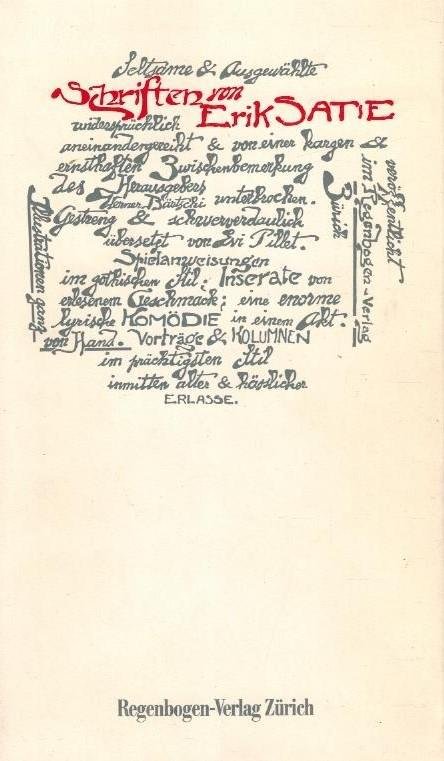 Seltsame & Ausgewählte
Schriften von
Erik SATIE
widersprüchlich
aneinandergereiht & von einer kargen &
ernsthaften Zwischenbemerkung
des Herausgebers
Werner Bärtschi unterbrochen.
Gestreng & schwerverdaulich
übersetzt von Evi Pillet.
Spielanweisungen
im gothischen Stil; Inserate von
erlesenem Geschmack; eine enorme
lyrische KOMÖDIE in einem Akt.
Vorträge & KOLUMNEN
im prächtigsten Stil
inmitten alter & hässlicher
ERLASSE.
Illustrationen ganz
von Hand.
veröffentlicht
im Regenbogen-Verlag
Zürich
Regenbogen-Verlag Zürich